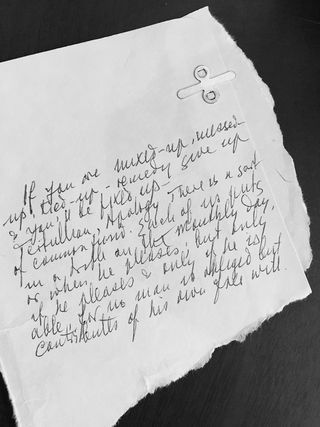 If you are mixed-up, messed-
up, tied-up - remedy give up
& you'll be fixed up -
Tertullian, Apology There is a sort
of common fund. Each of us puts
in a trifle on the monthly day,
or, when he pleases; but only
if he pleases & only if he is
able for no man is obliged but
contributes of his own free will.